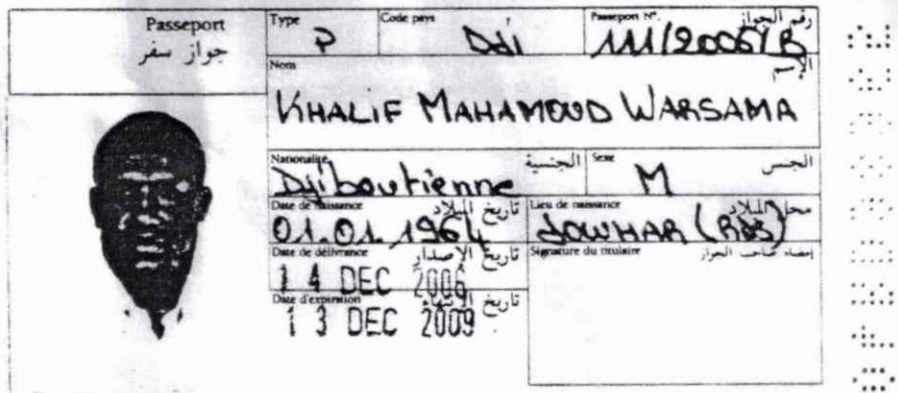 Passeport
جواز سفر
Type
P
Code pays
Ddi
Passeport N°.
رقم الجواز
111/2006/B
Nom
الإسم
KHALIF MAHAMOUD WARSAMA
Nationalité
الجنسية
Djiboutienne
Sexe
الجنس
M
Date de naissance
تاريخ الميلاد
01.01.1964
Lieu de naissance
محل الميلاد
JOWHAR
Date de délivrance
تاريخ الإصدار
14 DEC 2006
Signature du titulaire
إمضاء صاحب الجواز
Date d'expiration
تاريخ
13 DEC 2009